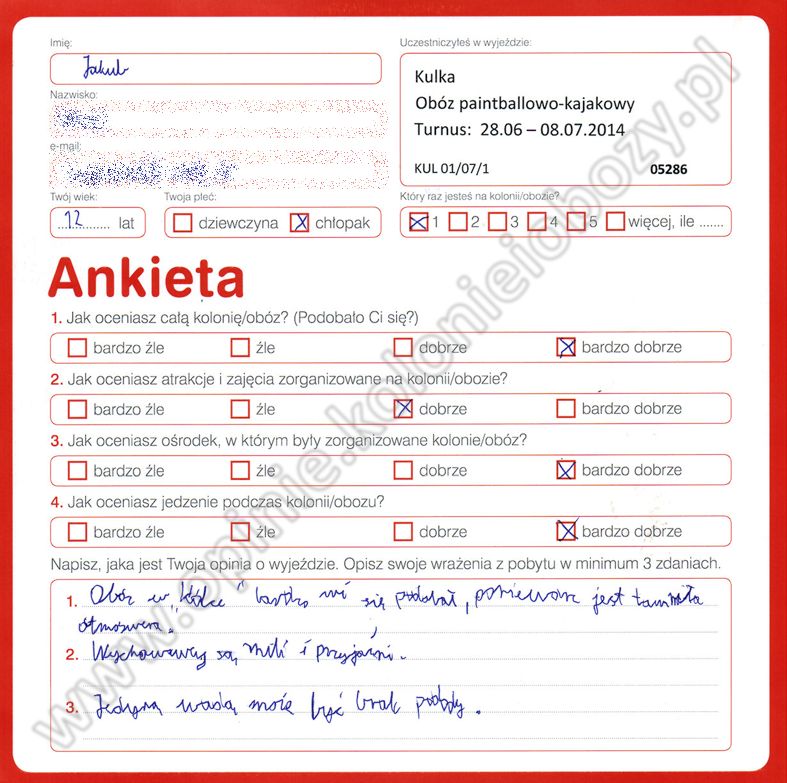 Imię:
Jakub
Uczestniczyłeś w wyjeździe:
Kulka
Obóz paintballowo-kajakowy
Turnus: 28.06 – 08.07.2014
KUL 01/07/1 05286
Nazwisko:
e-mail:
Twój wiek:
12 lat
Twoja płeć:
dziewczyna X chłopak
Który raz jesteś na kolonii/obozie?
X 1 2 3 4 5 więcej, ile .......
Ankieta
1. Jak oceniasz całą kolonię/obóz? (Podobało Ci się?)
bardzo źle źle dobrze X bardzo dobrze
2. Jak oceniasz atrakcje i zajęcia zorganizowane na kolonii/obozie?
bardzo źle źle X dobrze bardzo dobrze
3. Jak oceniasz ośrodek, w którym były zorganizowane kolonie/obóz?
bardzo źle źle dobrze X bardzo dobrze
4. Jak oceniasz jedzenie podczas kolonii/obozu?
bardzo źle źle dobrze X bardzo dobrze
Napisz, jaka jest Twoja opinia o wyjeździe. Opisz swoje wrażenia z pobytu w minimum 3 zdaniach.
1. Obóz w "Kulce" bardzo mi się podobał, ponieważ jest tam miła
atmoswera.
2. Wychowawcy są mili i przyjaźni.
3. Jedyną wadą może być brak pogody.
www.opinie.kolonieiobozy.pl